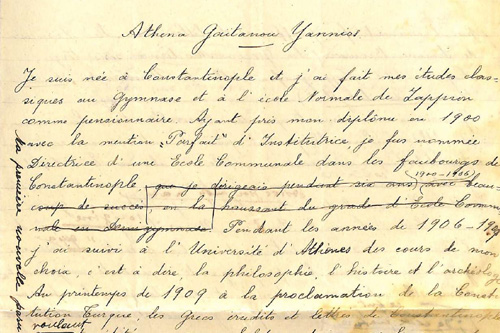 Athena Gaïtanou Yannios
Je suis née à Constantinople et j'ai fait mes études clas-
siques au Gymnase et à l'école Normale de Zappion
comme pensionnaire. Ayant pris mon diplôme en 1900
avec la mention "Parfait" d'Institutrice je fus nommée
Directrice d'une Ecole Communale dans les faubourgs de
(1900-1906)
Constantinople, que je dirigeais pendant six ans, avec beau
coup de succès en la haussant du grade d'Ecole Comm
nale en Demi gymnase. Pendant les années de 1906-19
j'ai suivi à l'Université d'Athènes des cours de mon
choix, c'est à dire, la philosophie, l'histoire et l'archéolog
Au printemps de 1909 à la proclamation de la Const
tution Turque, les Grecs érudits et lettrés de Constantinop
voulant
la première nouvelle